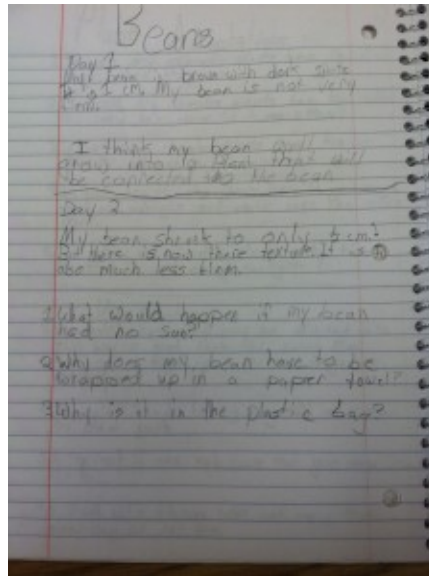 Beans
Day 1
My bean is brown with dark
It is 1 cm. My bean is not very
I think my bean will
grow into a plant that will
be the bean
Day 2
My bean shrunk to only cm!
there is now there texture. It is
also much less
1. What would happen if my bean
had no sun?
2. Why does my bean have to be
wrapped up in a paper towel?
3. Why is it in the plastic bag?